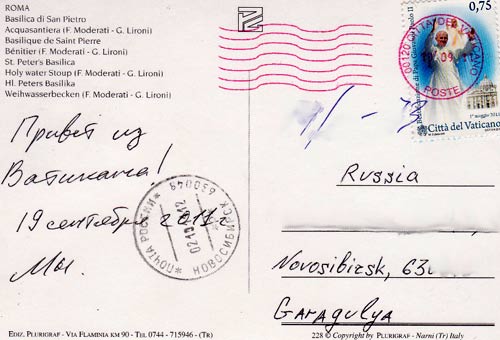 ROMA
Basilica di San Pietro
Acquasantiera (F. Moderati - G. Lironi)
Basilique de Saint Pierre
Bénitier (F. Moderati - G. Lironi)
St. Peter's Basilica
Holy water Stoup (F. Moderati - G. Lironi)
Hl. Peters Basilika
Weihwasserbecken (F. Moderati - G. Lironi)
0,75
00120 CITTÀ DEL VATICANO
POSTE
Beatificazione di Papa Giovanni Paolo II
1º maggio 2011
Città del Vaticano
Привет из
Ватикана!
19 сентября
Мы.
ПОЧТА РОССИИ
НОВОСИБИРСК 630048
Russia
Novosibirsk, 63
Garagulya
Ediz. Plurigraf - Via Flaminia km 90 - Tel 0744 - 715946 - (Tr)
228 © Copyright by Plurigraf - Narni (Tr) Italy